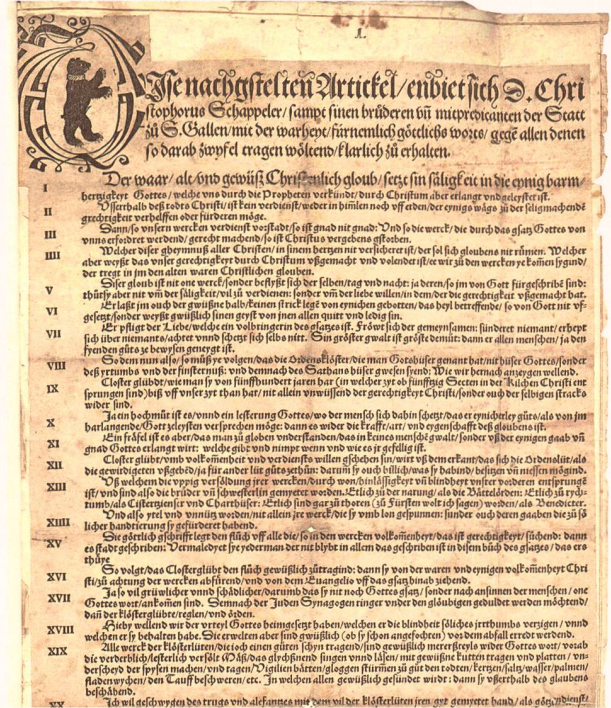 1.
Ise nachgstelten Artickel/enbiet sich D. Chri
stophorus Schappeler/sampt sinen brüderen vñ mitpredicanten der Statt
zů S. Gallen/mit der warheyt/fürnemlich göttlichs worts/gegẽ allen denen
so darab zwyfel tragen wöltend/klarlich zů erhalten.
I Der waar/alt/vnd gewüß Christenlich gloub/setzt sin säligkeit in die eynig barm/
hertzigkeyt Gottes/welche vns durch die Propheten verkündt/durch Christum aber erlangt vnd geleystet ist.
II Vsserhalb deß todts Christi/ist kein verdienst/weder in himlen noch vff erden/der eynigs wägs zů der seligmachendẽ
grechtigkeit verhelffen oder fürderen möge.
III Dann/so vnsern wercken verdienst vorstadt/so ist gnad nit gnad: Vnd so die werck/die durch das gsatz Gottes von
vnns erforderet werdend/gerecht machend/so ist Christus vergebens gstorben.
IIII Welcher diser gheymnuß aller Christen/in sinem hertzen nit versicheret ist/der sol sich gloubens nit rümen. Welcher
aber weyßt das vnser gerechtigkeyt durch Christum vßgemacht vnd volendet ist/ee wir zů den wercken
der tregt in jm den alten waren Christlichen glouben.
V Diser gloub ist nit one werck/sonder beflyßt sich der selben/tag vnd nacht: ja deren/so jm von Gott fürgeschribe sind:
thůt sy aber nit vmb der säligkeit/vil zů verdienen: sonder vmb der liebe willen/in dem/der die gerechtigkeit vßgemacht hat.
VI Er laßt jm ouch der gwüßne halb/keinen strick legẽ von eynichen gebotten/das heyl betreffende/so von Gott nit vf/
gesetzt/sonder weyßt gwüßlich sinen geyst von jnen allen quitt vnd ledig sin.
VII Er pfligt der Liebe/welche ein volbringerin des gsatzes ist. Fröwt sich der gemeynsamen: sünderet niemant/erhept
sich über niemants/achtet vnnd schetzt sich selbs nitt. Sin gröster gwalt ist gröste demůt: dann er allen menschen/ja den
fyenden gůts zů bewysen geneygt ist.
VIII So dem nun also/so můß ye volgen/das die Ordensklöster/die man Gotshüser genant hat/nit hüser Gottes/sonder
deß yrtumbs vnd der finsternuß: vnd demnach des Sathans hüser gwesen syend: Wie wir hernach anzeygen wellend.
IX Closter glübdt/wie man sy von fünffhundert jaren har (in welcher zyt ob fünfftzig Secten in der Kilchen Christi ent
sprungen sind) biß vff vnser zyt than hat/nit allein vnwissend der gerechtigkeyt Christi/sonder ouch der selbigen stracks
wider sind.
X Ja ein hochmůt ist es/vnnd ein lesterung Gottes/wo der mensch sich dahin schetzt/das er eynicherley gůts/als von jm
harlangende/Gott zeleysten versprechen möge: dann es wider die krafft/art/vnd eygenschafft deß gloubens ist.
XI Ein fräfel ist es aber/das man zů globen vnderstanden/das in keines menschẽ gwalt/sonder vß der eynigen gaab vñ
gnad Gottes erlangt wirt: welche gibt vnd nimpt wenn vnd wie es jr gefellig ist.
XII Closter glübt/vmb volkomenheit vnd verdiensts willen geschehen sin/wirt vß dem erkant/das sich die Ordenslüt/als
die gewirdigeten vßgebẽd/ja für ander lüt gůts zethůn: darum sy ouch billich/was sy habind/besitzen vñ niessen mögind.
XIII Vß welchem die vppig versöldung jrer wercken/durch won/hinlässigkeyt vñ blindheyt vnser vorderen entsprungẽ
ist/vnd sind also die brüder vñ schwesterlin gemeret worden. Etlich zů der narung/als die Bättelörden: Etlich zů rych
tumb/als Cistertzienser vnd Charthüser: Etlich sind gar zů thoren (zů Fürsten wolt ich sagen) worden/als Benedicter.
XIIII Vnd also ytel vnd vnnütz worden/nit allein jre werck/die sy vmb lon gespunnen: sunder ouch deren gaaben die zů sö
licher handtierung sy gefürderet habend.
XV Die göttlich gschrifft legt den flůch vff alle die/so in den wercken volkomenheyt/das ist gerechtigkeyt/sůchend: dann
es stadt geschriben: Vermaledyet sye yederman der nit blybt in allem das geschriben ist in disem bůch des gsatzes/das ers
thüye.
XVI So volgt/das Closterglübt den flůch gwüßlich zůtragind: dann sy von der waren vnd eynigen volkomenheyt Chri
sti/zů achtung der wercken abfürend/vnd von dem Euangelio vff das gsatz hinab ziehend.
XVII Ja so vil grüwlicher vnnd schädlicher/darumb das sy nit noch Gottes gsatz/sonder nach ansinnen der menschen/one
Gottes wort/ankomen sind. Dennacht der Juden Synagogen ringer vnder den glöubigen geduldet werden möchtend/
dañ der klösterglübte/reglen/vnd örden.
XVIII Hieby wellend wir der vrteyl Gottes heimgesetzt haben/welchen er die blindheit söliches jrrthumbs verzigen/vnnd
welchen er sy behalten habe. Die erwelten aber sind gwüßlich (ob sy schon angefochten) vor dem abfall erredt werdend.
XIX Alle werck der klösterlüten/die joch einen gůten schyn tragend/sind gewüßlich mererßteyls wider Gottes wort/vorab
die verderblich/lesterlich versölt Mäß/das glychßnend singen vnnd läsen/mit gewüßne kutten tragen vnd platten/vn/
derscheyd der spysen machen/von sagen/Vigilien bätten/gloggen stürmen zů gůt den todten/kertzen/saltz/wasser/palmen/
fladen wychen/den Tauff beschweren/etc. In welchen allen gewüß gesündet wirdt: dann sy vßerthalb des glaubens
beschähend.
XX Ich wil geschwygen des trugs vnd alefantzes mit dem vil der klösterlüten jren gyt gemeynet hand/als